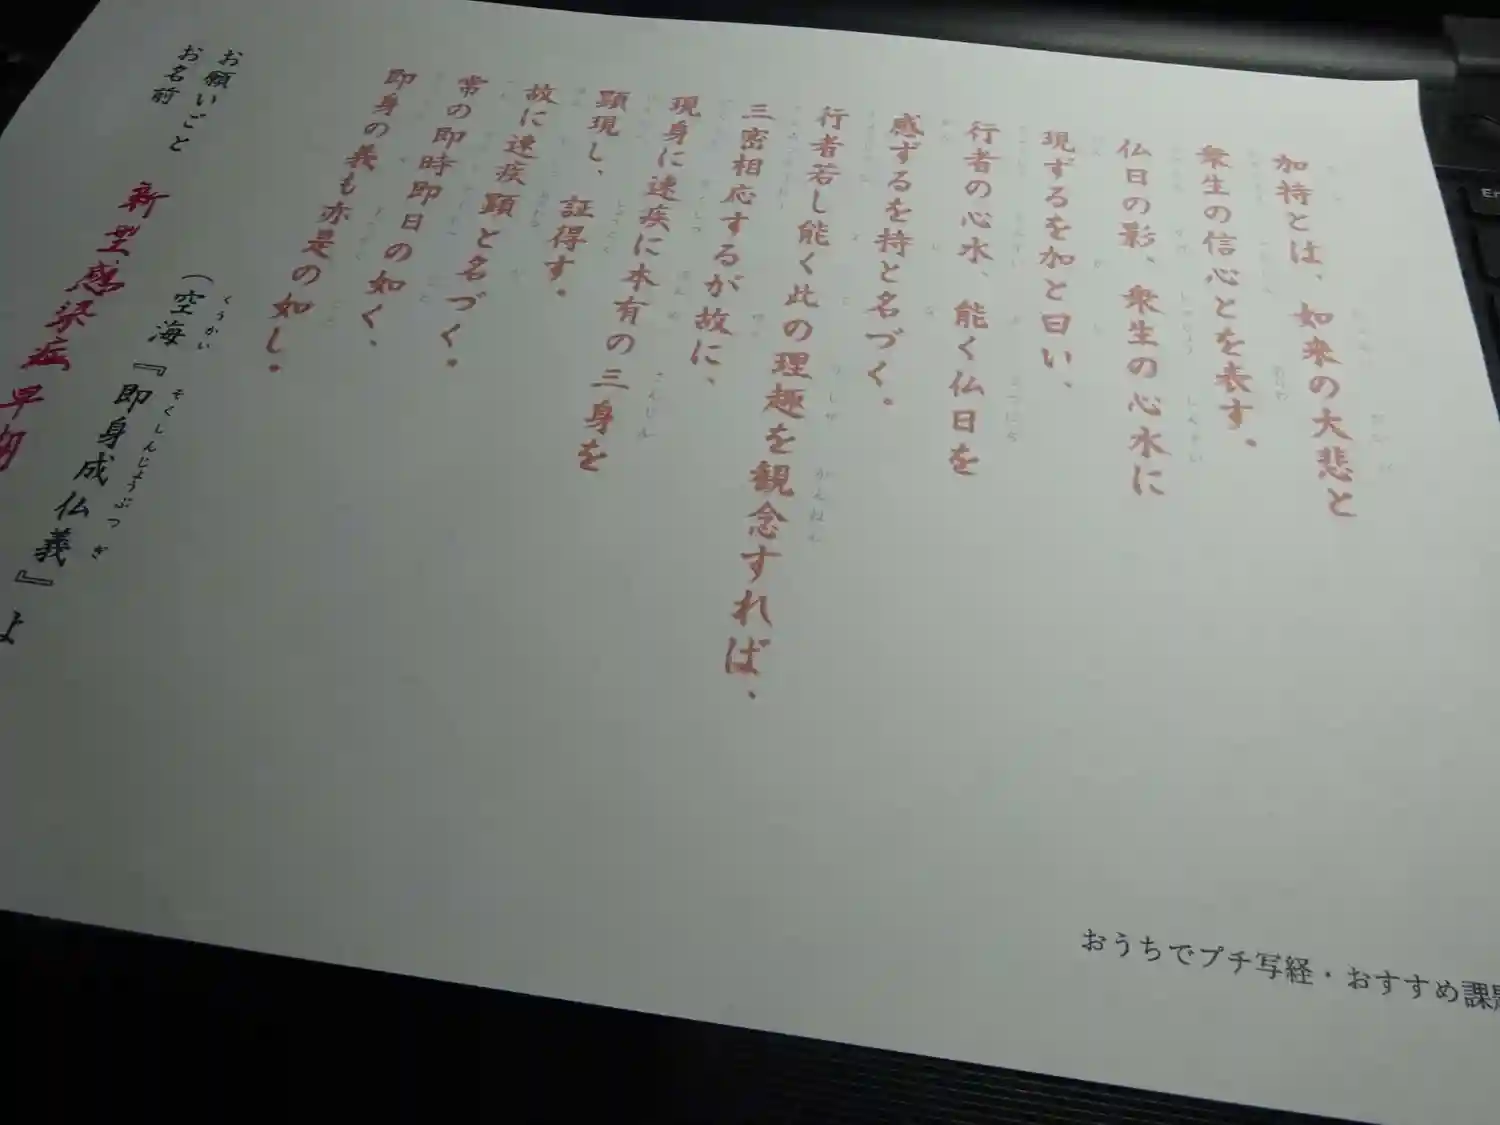 加持とは、如来の大悲と
衆生の信心とを表す、
仏日の影、衆生の心水に
現ずるを加と曰い、
行者の心水、能く仏日を
感ずるを持と名づく。
行者若し能く此の理趣を観念すれば、
三密相応するが故に、
現身に速疾に本有の三身を
顕現し、証得す。
故に速疾顕と名づく。
常の即時即日の如く、
即身の義も亦是の如し。
(空海『即身成仏義』よ
くうかい そくしんじょうぶつぎ
お願いごと
お名前
新型感染症早期
おうちでプチ写経・おすすめ課題
En